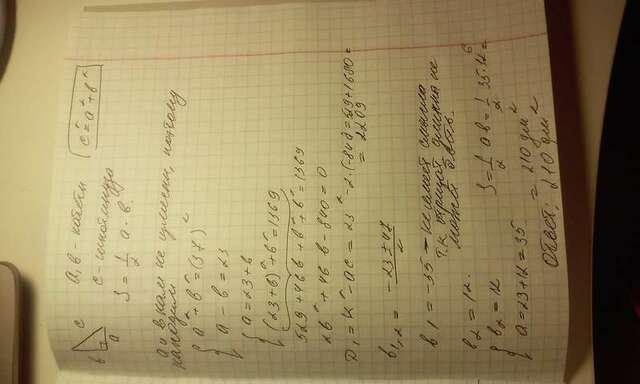 a, b - катеты
c² = a² + b²
c - гипотенуза
S = 1/2 a · b.
c
b
a
a и b нам не известны, поэтому
находим
a² + b² = (37)²
a - b = 23
a = 23 + b
(23 + b)² + b² = 1369
529 + 46b + b² + b² = 1369
2b² + 46b - 840 = 0
D₁ = k² - ac = 23² - 2·(-840) = 529 + 1680 =
= 2209
b₁,₂ = (-23 ± 47)/2
b₁ = -35 - не имеет смысла
т.к. отрицат. длинна не
может быть.
b₂ = 12.
b₂ = 12
a = 23 + 12 = 35
S = 1/2 ab = 1/2 35 · 12 6 =
= 210 дм²
Ответ: 210 дм²